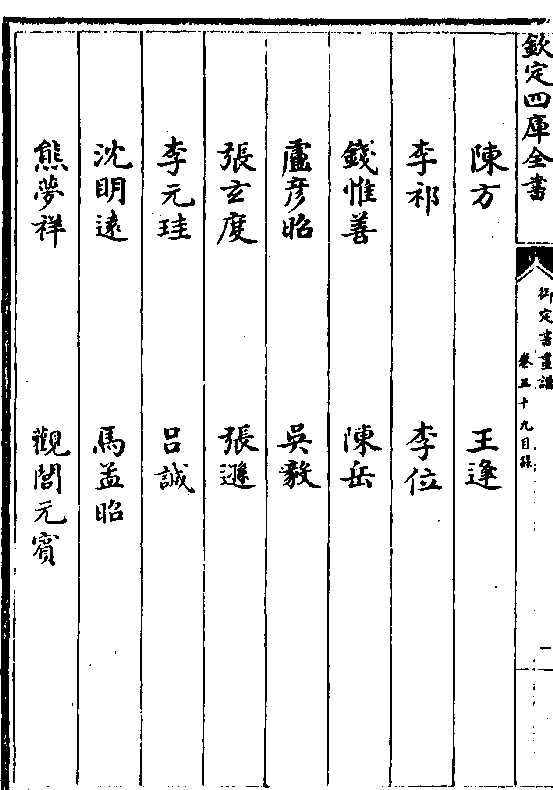 欽定四庫全書
御定書畫譜
卷五十九目錄
一
陳方 王逢
李祁 李位
錢惟善 陳岳
盧彦昭 吳毅
張玄度 張遜
李元珪 呂誠
沈明遠 馬孟昭
熊夢祥 觀閭元賓